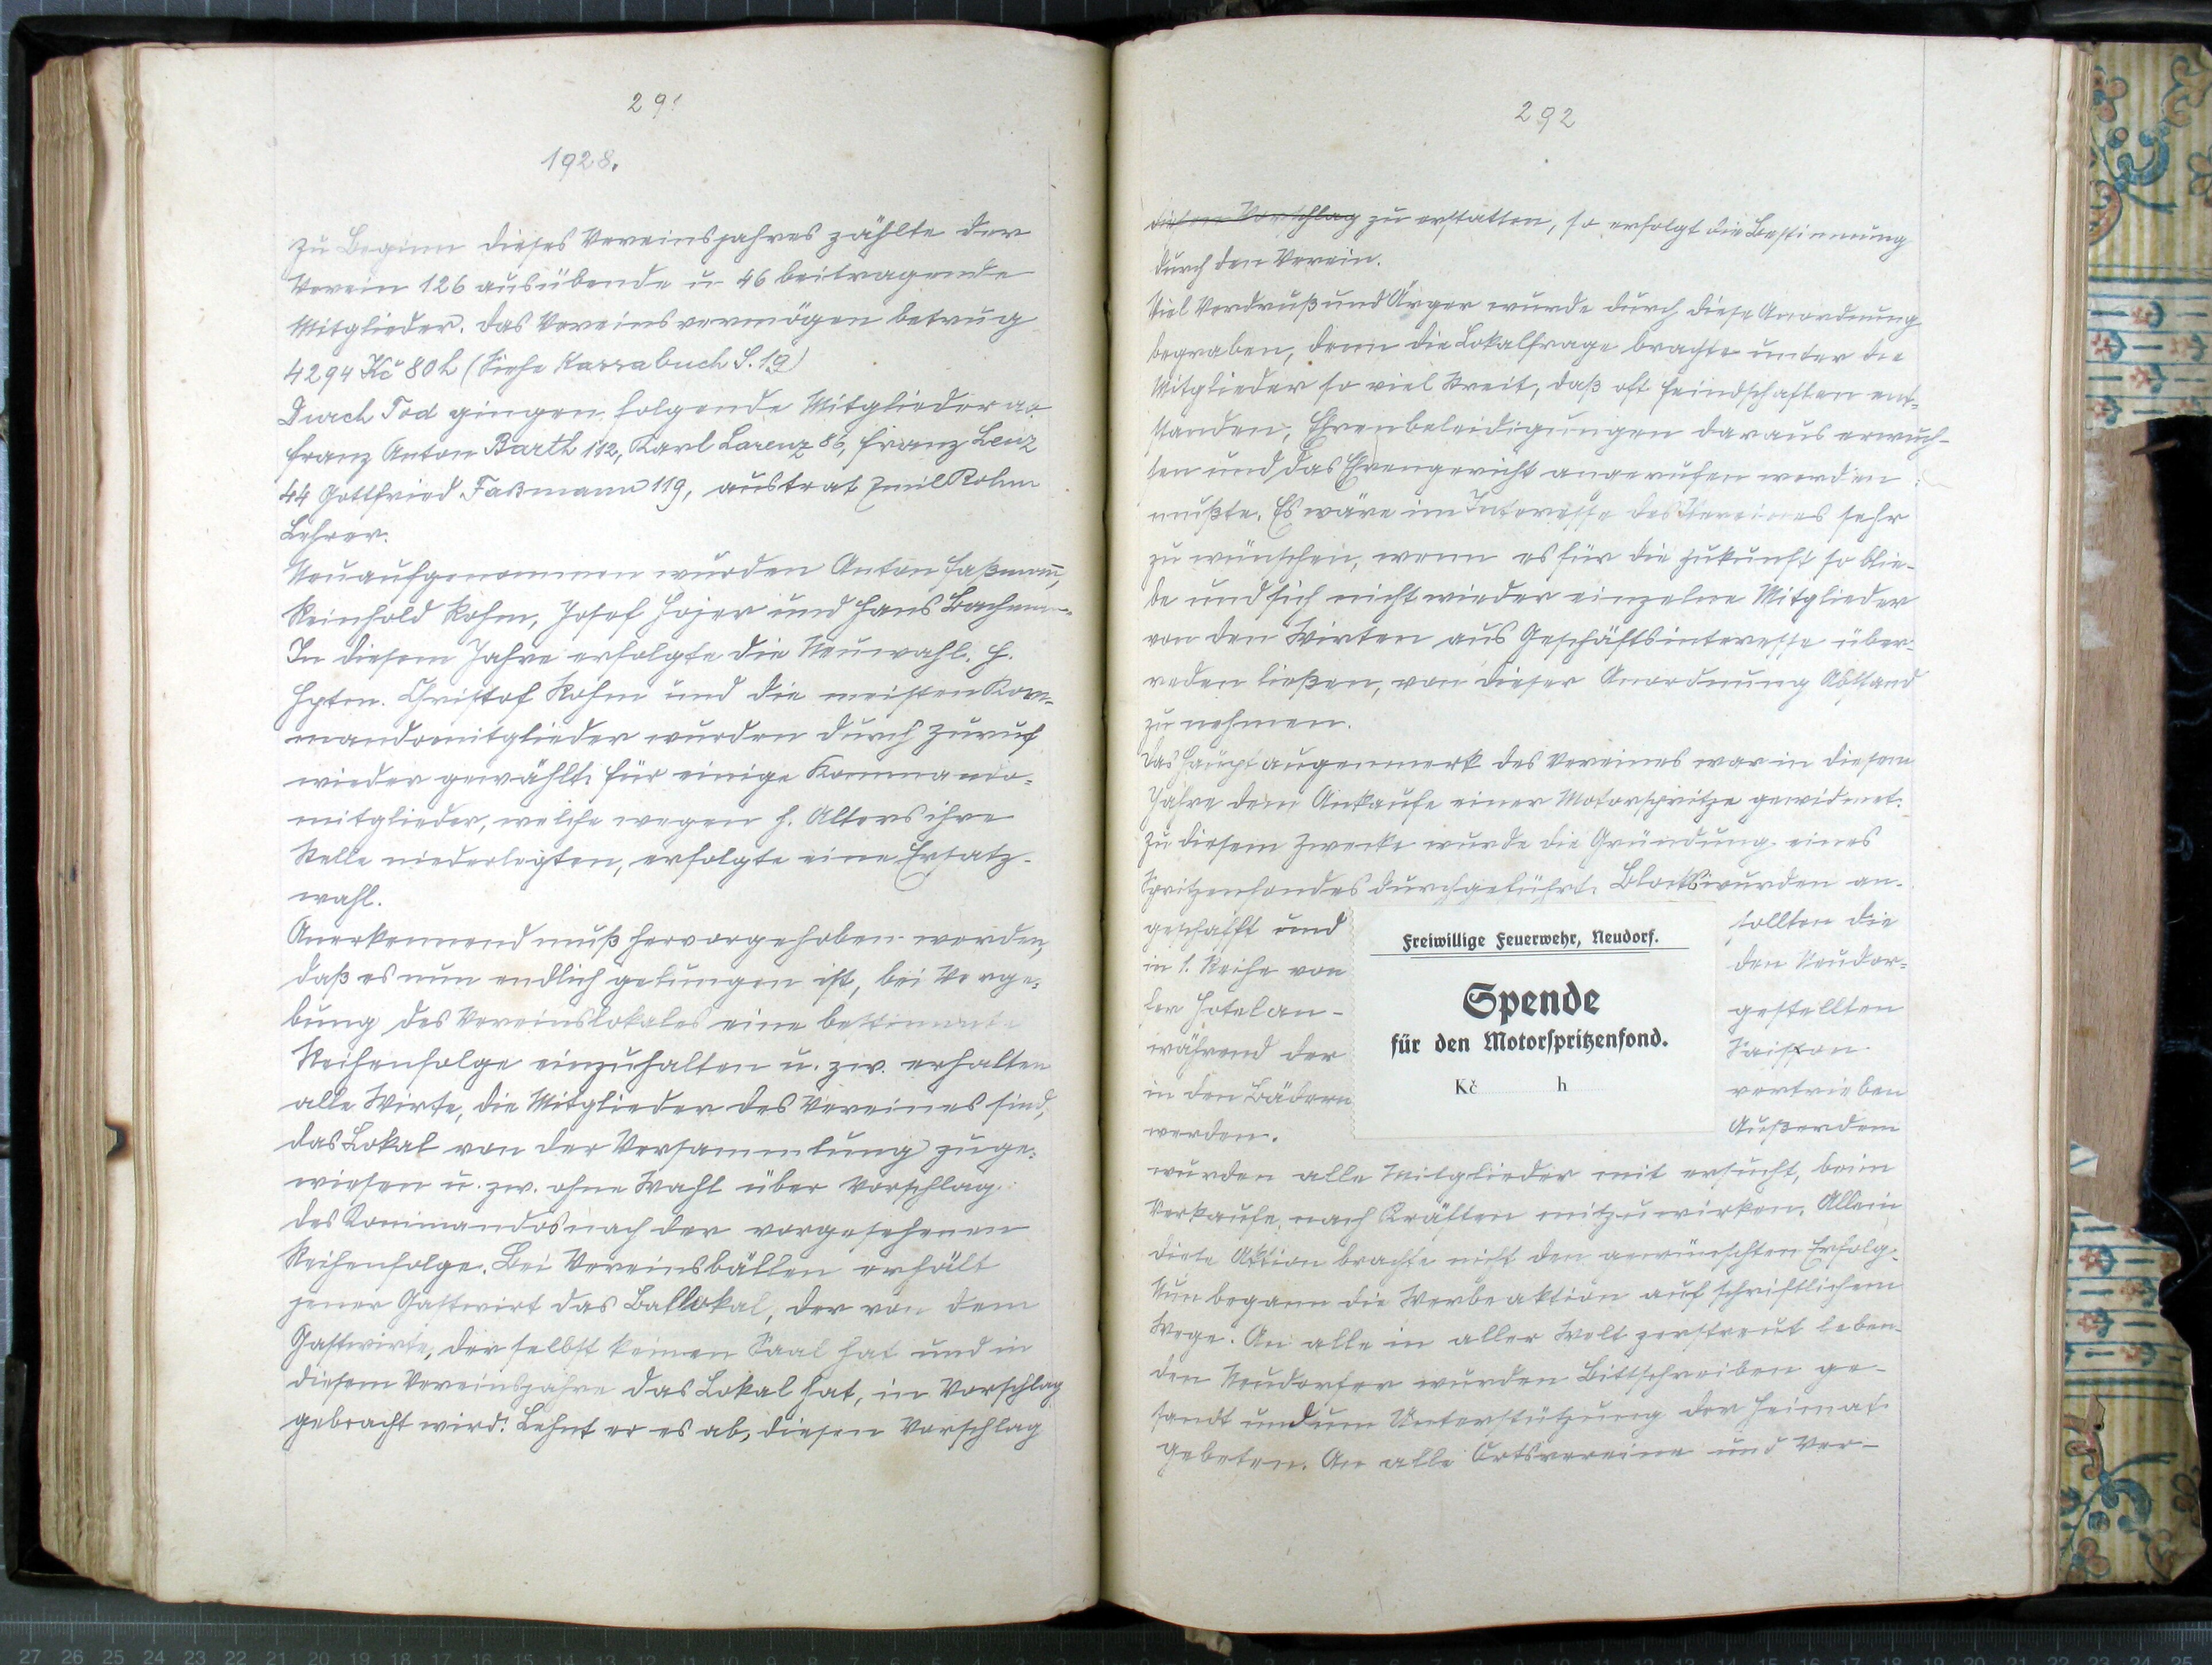 291
1928.
Zu Beginn dieses Vereinsjahres zählte der
Verein 126 ausübende u 46 beitragende
Mitglieder. Das Vereinsvermögen betrug
4294 Kč 80 h (Siehe Kassabuch S. 19)
Durch Tod gingen folgende Mitglieder ab
Franz Anton Barth 112, Karl Lorenz 86, Franz Lenz
44 Gottfried Faßmann 119, austrat Emil Rohm
Lehrer.
Neuaufgenommen wurden Anton Faßmann,
Reinhold Rohm, Josef Hojer und Hans Bachmann.
In diesem Jahre erfolgte die Neuwahl. H.
Hptm. Christof Rohm und die meisten Kom-
mandomitglieder wurden durch Zuruf
wieder gewählt. Für einige Kommando-
mitglieder, welche wegen h. Alters ihre
Stelle niederlegten, erfolgte eine Ersatz-
wahl.
Anerkennend muß hervorgehoben werden,
daß es nun endlich gelungen ist, bei Verge-
bung des Vereinslokales eine bestimmte
Reihenfolge einzuhalten u. zw. erhalten
alle Wirte, die Mitglieder des Vereines sind,
das Lokal von der Versammlung zuge-
wiesen u. zw. ohne Wahl über Vorschlag
des Kommandos nach der vorgesehenen
Reihenfolge. Bei Vereinsbällen erhält
jener Gastwirt das Ballokal, der von dem
Gastwirte, der selbst keinen Saal hat und in
diesem Vereinsjahre das Lokal hat, in Vorschlag
gebracht wird. Lehnt er es ab, diesen Vorschlag
292
diesen Vorschlag zu erstatten, so erfolgt die Bestimmung
durch den Verein.
Viel Verdruß und Ärger wurde durch diese Anordnung
begraben, denn die Lokalfrage brachte unter die
Mitglieder so viel Streit, daß oft Feindschaften ent-
standen, Ehrenbeleidigungen daraus erwuch-
sen und das Ehrengericht angerufen werden
mußte. Es wäre im Interesse des Vereines sehr
zu wünschen, wenn es für die Zukunft so blie-
be und sich nicht wieder einzelne Mitglieder
von den Wirten aus Geschäftsinteresse über-
reden ließen, von dieser Anordnung Abstand
zu nehmen.
Das Hauptaugenmerk des Vereines war in diesem
Jahre dem Ankaufe einer Motorspritze gewidmet.
Zu diesem Zwecke wurde die Gründung eines
Spritzenfondes durchgeführt. Blocks wurden an-
geschafft und sollten die
in 1. Reihe von den Neudor-
fer Hotelan- gestellten
während der Saison
in den Bädern vertrieben
werden. Außerdem
Freiwillige Feuerwehr, Neudorf.
Spende
für den Motorspritzenfond.
Kč h
wurden alle Mitglieder mit ersucht, beim
Verkaufe nach Kräften mitzuwirken. Allein
diese Aktion brachte nicht den gewünschten Erfolg.
Nun begann die Werbeaktion auf schriftlichem
Wege. An alle in aller Welt zerstreut leben-
den Neudorfer wurden Bittschreiben ge-
sandt und um Unterstützung der Heimat
gebeten. An alle Ortsvereine und Ver-